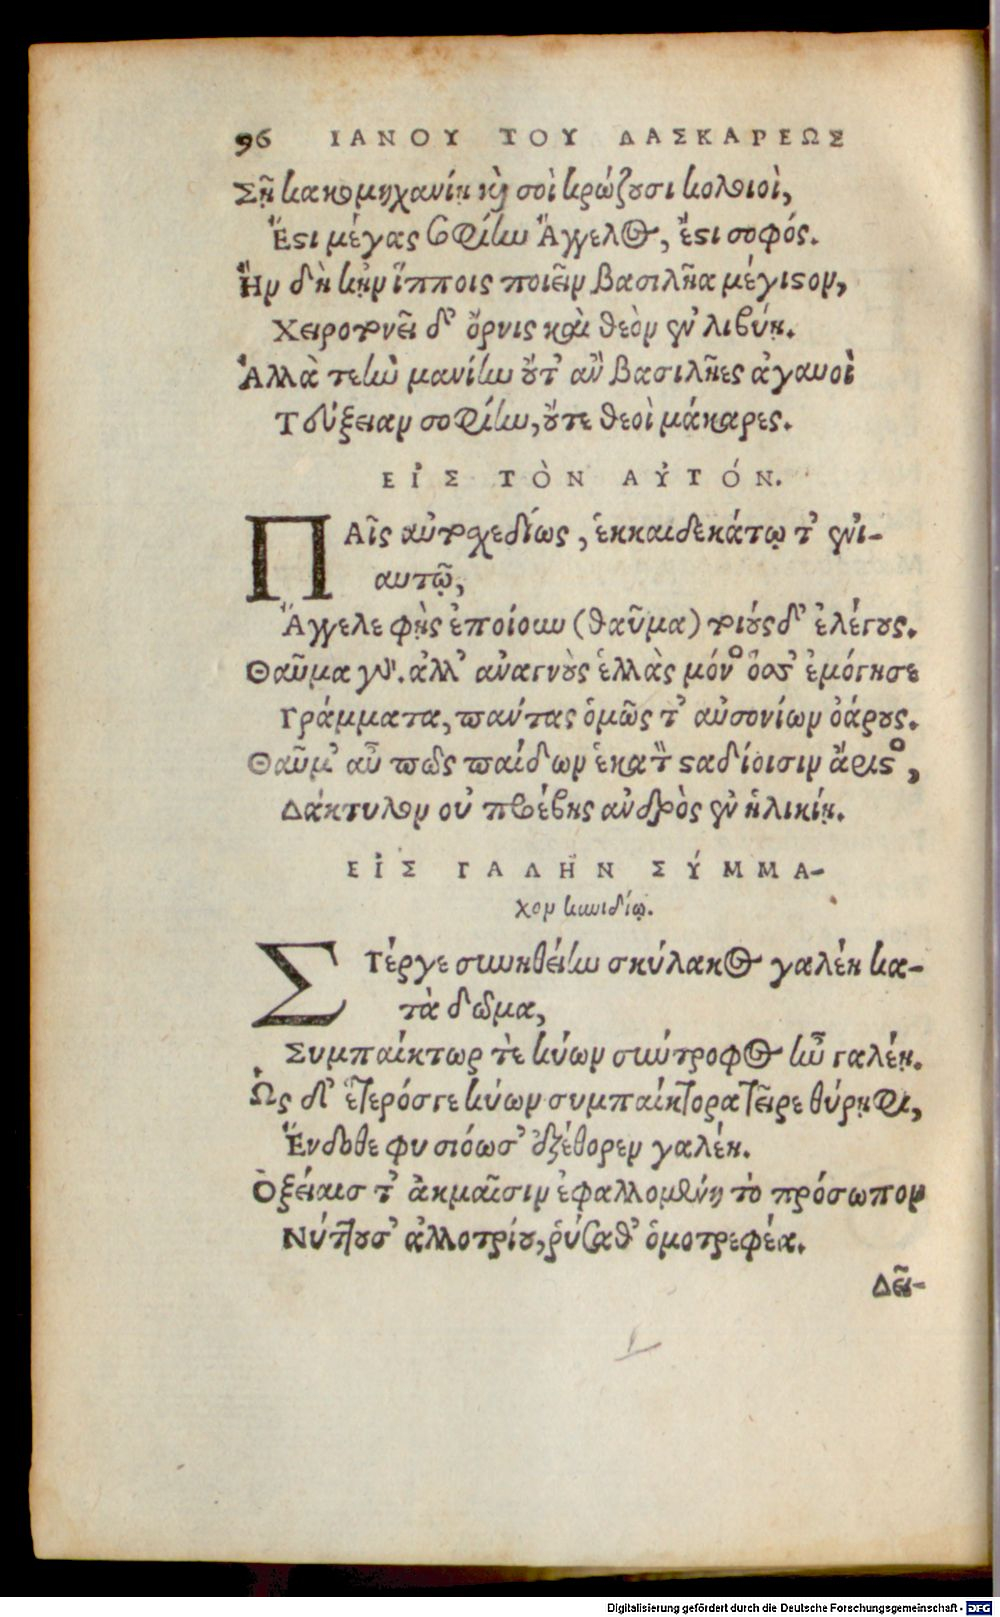 96 ΙΑΝΟΥ ΤΟΥ ΛΑΣΚΑΡΕΩΣ
Σῇ κακομηχανίῃ καὶ σοὶ κρώζουσι κολοιοὶ,
Ἔστι μέγας σοφίην Ἄγγελος, ἔστι σοφός.
Ἢν δὴ κἢν ἵπποις ποιεῖν βασιλῆα μέγιστον,
Χειροτονεῖ δ' ὄρνις καὶ θεὸν ἐν λιβύῃ.
Ἀλλὰ τεὴν μανίην οὔτ' ἂν βασιλῆες ἀγαυοὶ
Τεύξειαν σοφίην, οὔτε θεοὶ μάκαρες.
ΕἸΣ ΤῸΝ ΑΥ̓ΤΌΝ.
ΠΑῖς αὐτοσχεδίως, ἑκκαιδεκάτῳ τ' ἐνι-
αυτῷ,
Ἄγγελε φῂς ἐποίουν (θαῦμα) τοιούσδ' ἐλέγους.
Θαῦμα γ' ἀλλ' ἀναγνοὺς ἑλλὰς μόνον ὅσσ' ἐμόγησε
Γράμματα, πάντας ὁμῶς τ' αὐσονίων ὀάρους.
Θαῦμ' αὖ πῶς παίδων ἑκατὸν σταδίοισιν ἄριστος,
Δάκτυλον οὐ προέβης ἀνδρὸς ἐν ἡλικίῃ.
ΕἸΣ ΓΑΛΗ͂Ν ΣΎΜΜΑ-
χον κυνιδίῳ.
ΣΤέργε συνηθείην σκύλακος γαλέη κα-
τὰ δῶμα,
Συμπαίκτωρ τὲ κύων σύντροφος ἦν γαλέῃ.
Ὡς δ' ἕτερόσγε κύων συμπαίκτορα τεῖρε θύρῃφι,
Ἔνδοθε φυσιόωσ' ἐξέθορεν γαλέη.
Ὀξείαισ τ' ἀκμαῖσιν ἐφαλλομένη τὸ πρόσωπον
Νύττουσ' ἀλλοτρίου, ῥύσαθ' ὁμοτρεφέα.
Δει-
Digitalisierung gefördert durch die Deutsche Forschungsgemeinschaft - DFG